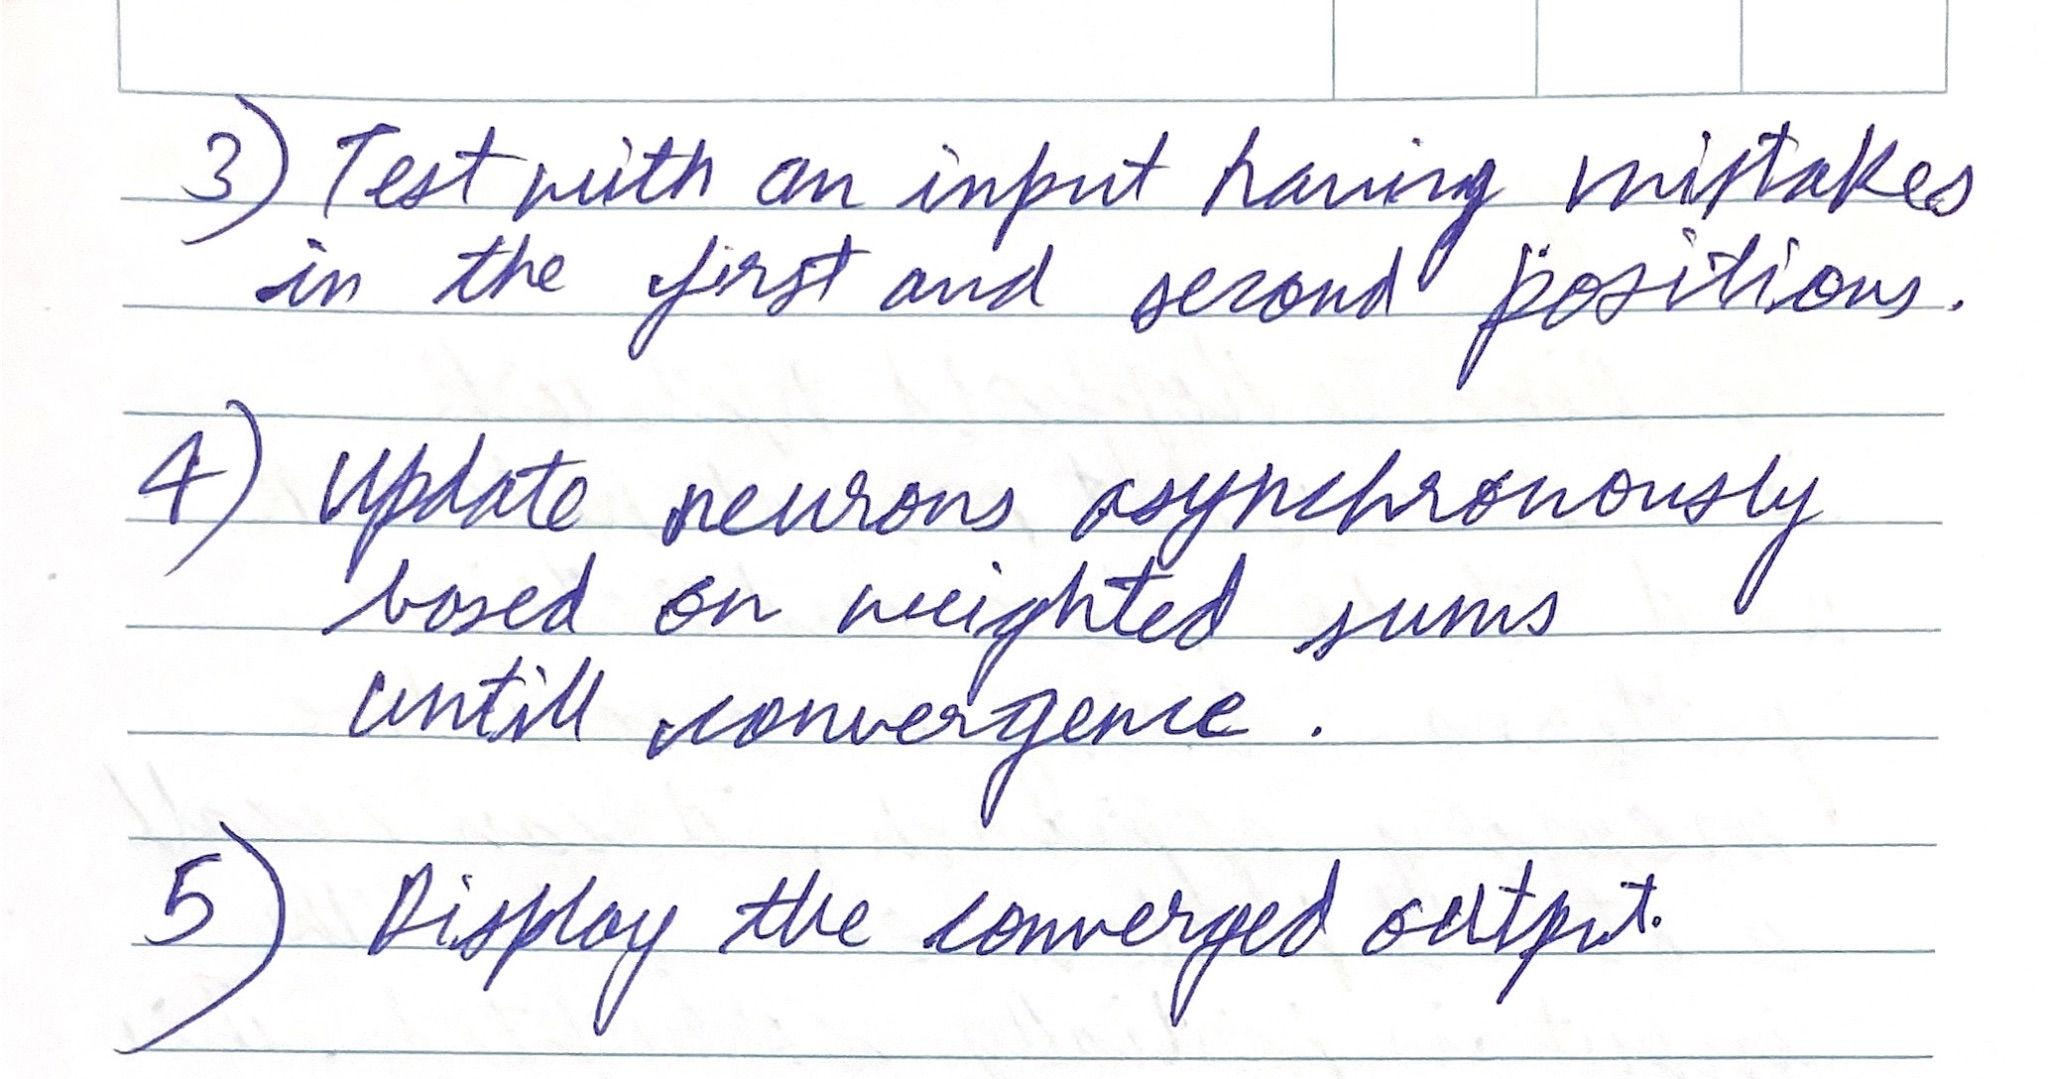 3) Test with an input having mistakes
in the first and second positions.
4) Update neurons asynchronously
based on weighted sums
untill convergence.
5) Display the converged output.